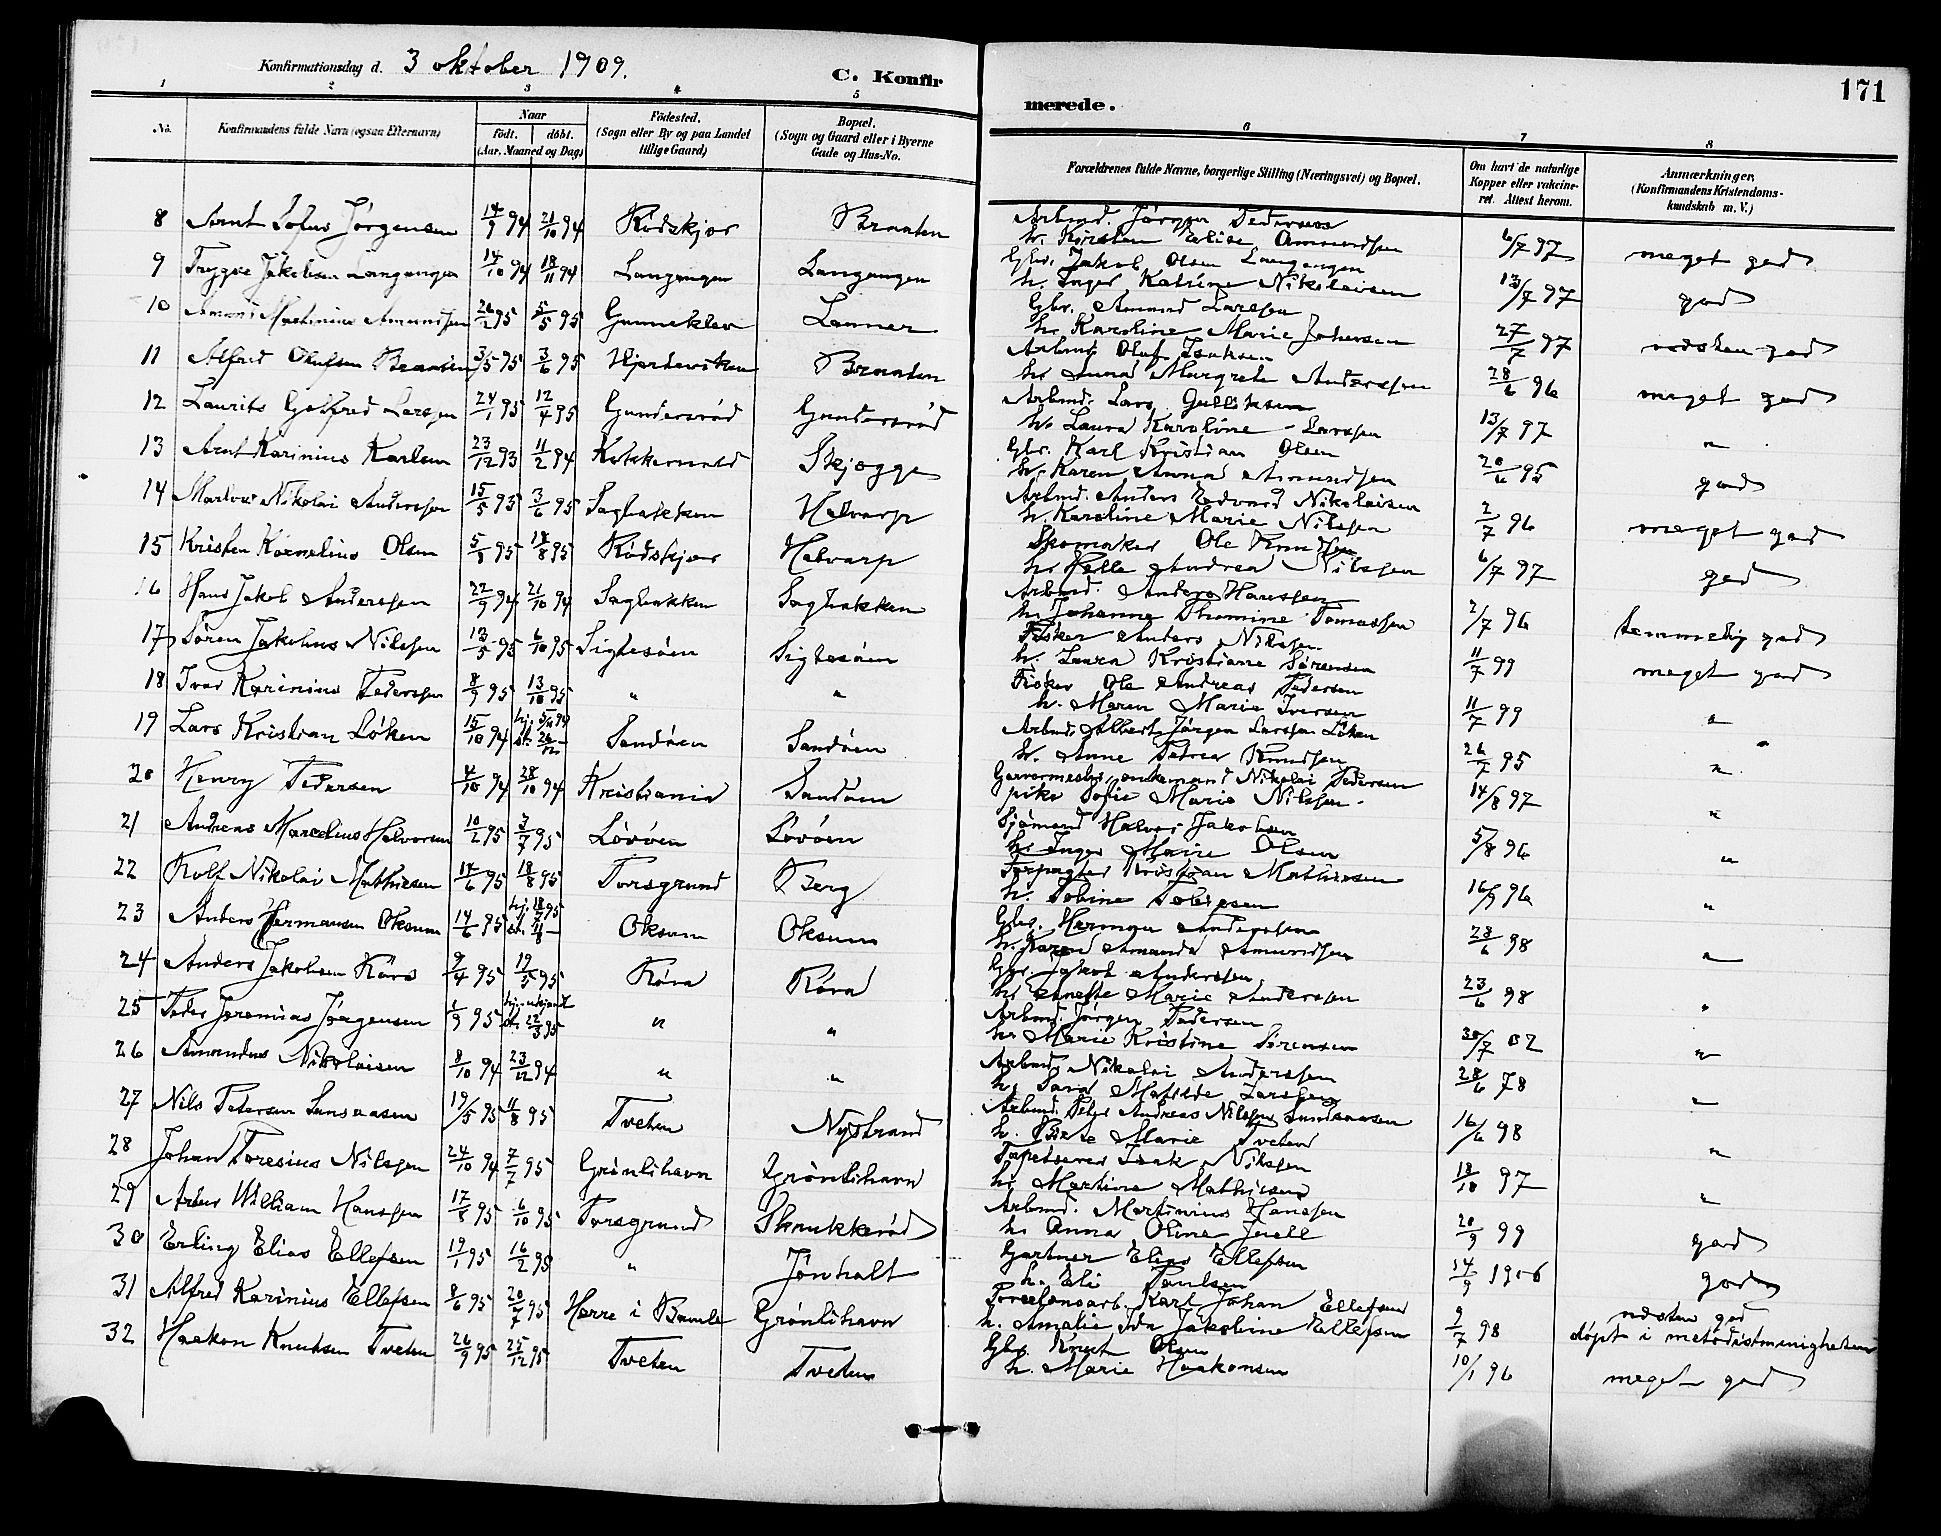 171
Konfirmationsdag d. 3 oktober 1909.
C. Konfirmerede.
1 2 3 4 5 6 7 8
No. Konfirmandens fulde Navn (ogsaa Efternavn) Naar født. døbt. (Aar, Maaned og Dag) Fødested. (Sogn eller By og paa Landet tillige Gaard) Bopæl. (Sogn og Gaard eller i Byerne Gade og Hus-No. Forældrenes fulde Navne, borgerlige Stilling (Næringsvei) og Bopæl. Om havt de naturlige Kopper eller vakcineret. Attest herom. Anmærkninger, (Konfirmandens Kristendomskundskab m. V.)
8 Arnt Sofus Jørgensen 14/9 94 21/10 94 Rødskjær Braaten Arbmd. Jørgen Pedersen
h. Kirsten Elise Amundsen 6/7 97 meget god
9 Trygve Jakobsen Langangen 14/10 94 18/11 94 Langangen Langangen Gbr. Jakob Olsen Langangen
h. Inger Katrine Nikolaisen 13/7 97 god
10 Amund Martinius Amundsen 26/2 95 5/5 95 Gunneklev Lanner Gbr. Amund Larsen
h. Karoline Marie Johnsen 27/7 97 næsten god
11 Alfred Olufsen Braaten 3/5 95 3/6 95 Hjerteviken Braaten Arbmd. Oluf Isaksen
h. Anna Margrete Anderssen 28/6 96 meget god
12 Laurits Gotfred Larsen 24/1 95 12/4 95 Gundersrød Gundersrød Arbmd. Lars Gulliksen
h. Laura Karoline Larssen 13/7 97 "
13 Arnt Karinius Karlsen 23/12 93 11/2 94 Kokkersvold Skjøgge Gbr. Karl Kristian Olsen
h. Karen Anna Amundsen 20/6 95 god
14 Marius Nikolai Anderssen 15/5 95 3/6 95 Sagbakken Helvarp Arbmd. Anders Edvard Nikolaisen
h. Karoline Marie Nilssen 2/7 96 meget god
15 Kristen Kornelius Olsen 5/8 95 18/8 95 Rødskjær Helvarp Skomaker Ole Knudsen
h. Helle Andrea Nilssen 6/7 97 god
16 Hans Jakob Anderssen 22/9 94 21/10 94 Sagbakken Sagbakken Arbmd. Anders Hanssen
h. Johanne Thomine Tomassen 2/7 96 temmelig god
17 Søren Jakobus Nilssen 13/5 95 6/10 95 Sigtesøen Sigtesøen Fisker Anders Nilssen
h. Laura Kristiane Sørensen 11/7 99 meget god
18 Ivar Karinius Pedersen 8/9 95 13/10 95 " " Fisker Ole Andreas Pedersen
h. Maren Marie Iversen 11/7 99 "
19 Lars Kristian Løken 15/10 94 Sandøen Sandøen Arbmd. Albert Jørgen Larssen Løken
h. Anne Petrea Knudsen 26/7 95 "
20 Henry Pedersen 4/10 94 28/10 94 Kristiania Sandøen Garvermester, enkemand Nikolai Pedersen
pike Sofie Marie Nilssen 14/8 97 "
21 Andreas Marcelius Halvorsen 10/2 95 7/7 95 Løvøen Løvøen Sjømand Halvor Jakobsen
h. Inger Marie Olsen 5/8 96 "
22 Rolf Nikolai Mathisen 14/6 95 18/8 95 Porsgrund Berg Forpagter Kristian Mathisen
h. Sobine Tobiesen 16/9 96 "
23 Anders Hermansen Oksum 14/6 95 Oksum Oksum Gbr. Herman Anderssen
h. Karen Amanda Amundsen 28/6 98 "
24 Anders Jakobsen Røra 9/4 95 19/5 95 Røra Røra Gbr. Jakob Anderssen
h. Anette Marie Anderssen 23/6 98 "
25 Peder Jeremias Jørgensen 1/9 95 hj. ukjendt " " Arbmd. Jørgen Pedersen
h. Marie Kristine Sørensen 30/7 02 "
26 Amandus Nikolaisen 8/10 94 23/12 94 " " Arbmd. Nikolai Anderssen
h. Sara Matilde Larssen 28/6 78 "
27 Nils Petersen Sundsaasen 19/5 95 11/8 95 Tveten Nystrand Arbmd. Peter Andreas Nilssen Sundsaasen
h. Berte Marie Tveten 16/6 98 "
28 Johan Toresius Nilssen 24/10 94 7/7 95 Grønlihavn Grønlihavn Tapetserer Isak Nilssen
h. Martine Mathisen 18/10 97 "
29 Artur William Hanssen 17/8 95 6/10 95 Porsgrund Skrukkerød Arbmd. Martinius Hanssen
h. Anna Oline Juell 20/9 99 god
30 Erling Elias Ellefsen 19/1 95 16/2 95 " Jønholt Gartner Elias Ellefsen
h. Eli Paulsen 14/9 1906 god
31 Alfred Karinius Ellefsen 8/6 95 20/7 95 Herre i Bamle Grønlihavn Porcelænsarb. Karl Johan Ellefsen
h. Amalie Ida Jakobine Ellefsen 9/7 98 næsten god døpt i metodistmenigheten
32 Haakon Knutsen Tveten 26/9 95 25/12 95 Tveten Tveten Gbr. Knut Olsen
h. Marie Haakonsen 10/1 96 meget god